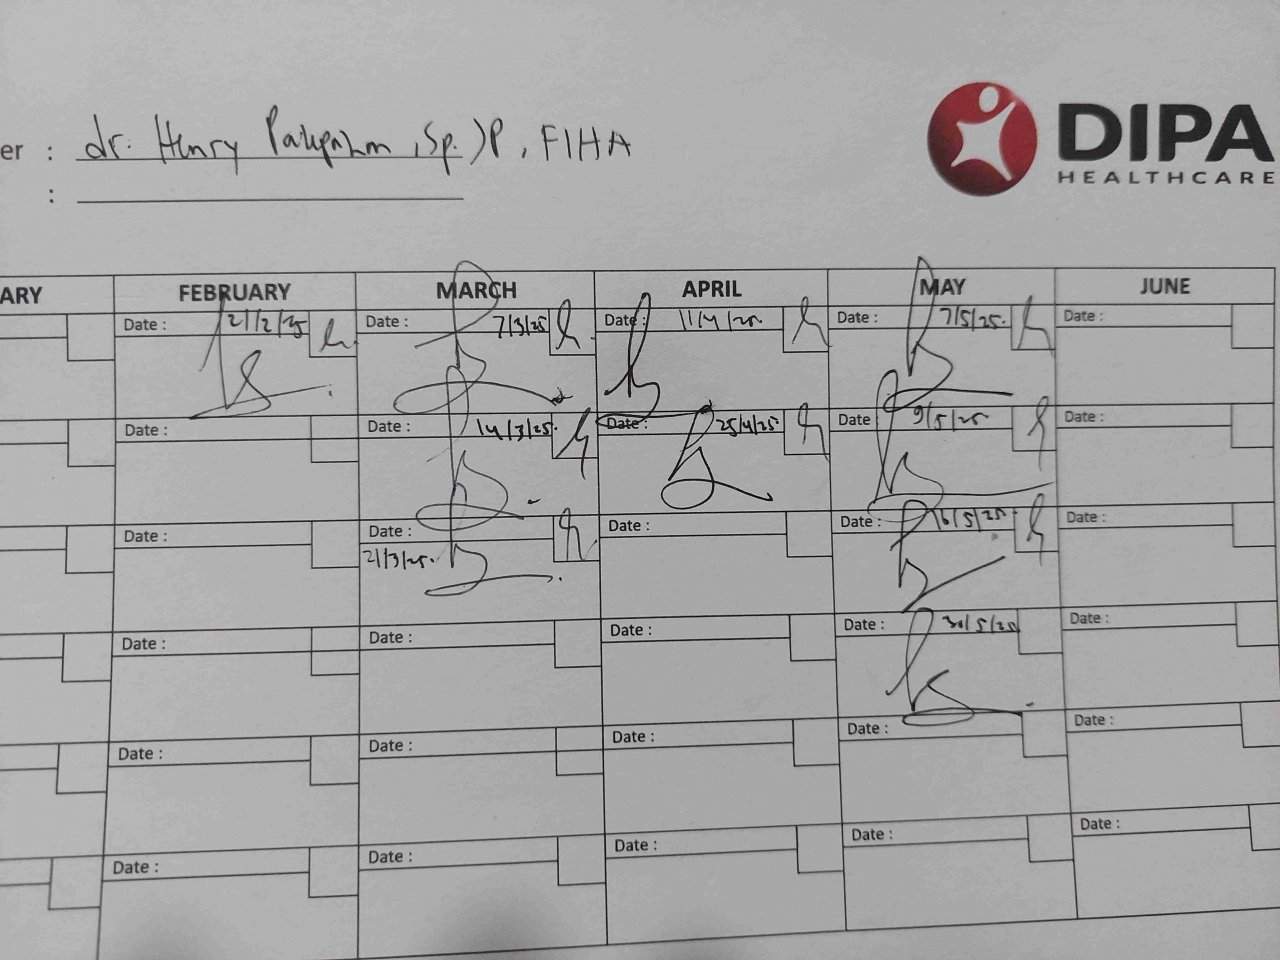 er : dr. Henry , Sp.JP, FIHA
:
DIPA
HEALTHCARE
ARY FEBRUARY MARCH APRIL MAY JUNE
Date : 21/2/25 Date : 7/3/25 Date : 11/4/25. Date : 7/5/25. Date :
Date : Date : 14/3/25. Date : 25/4/25. Date 9/5/25. Date :
Date : Date : 21/3/25. Date : Date : 16/5/25. Date :
Date : Date : Date : Date : 30/5/25 Date :
Date : Date : Date : Date : Date :
Date : Date : Date : Date : Date :